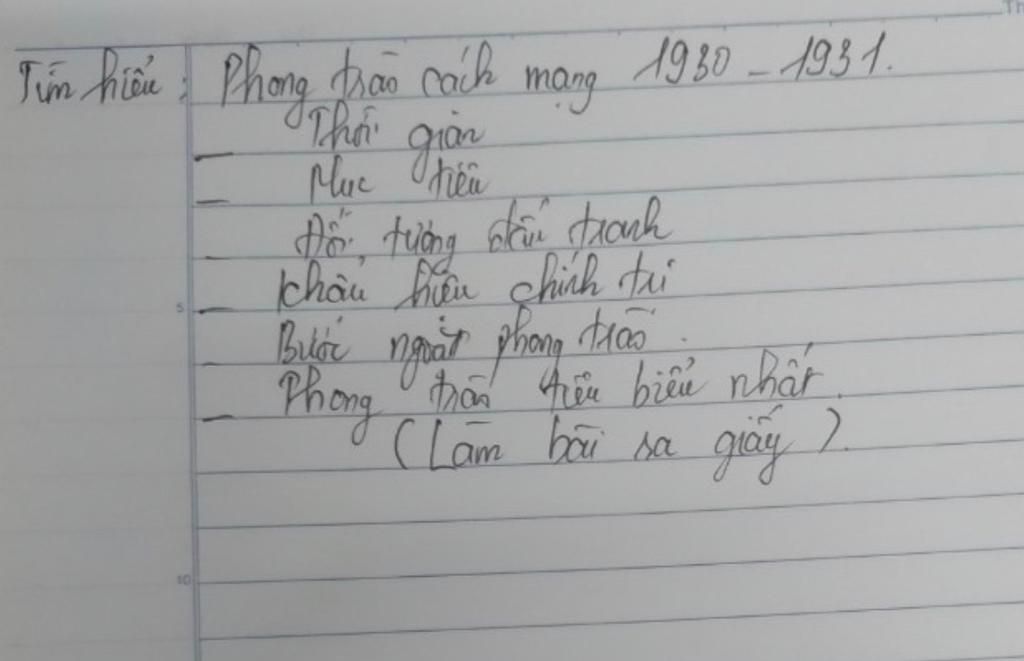 Tìm hiểu : Phong trào cách mạng 1930 - 1931.
- Thời gian
- Mục tiêu
- Đối tượng đấu tranh
- Khẩu hiệu chính trị
- Bước ngoặt phong trào.
- Phong trào tiêu biểu nhất.
(Làm bài ra giấy).
5
10